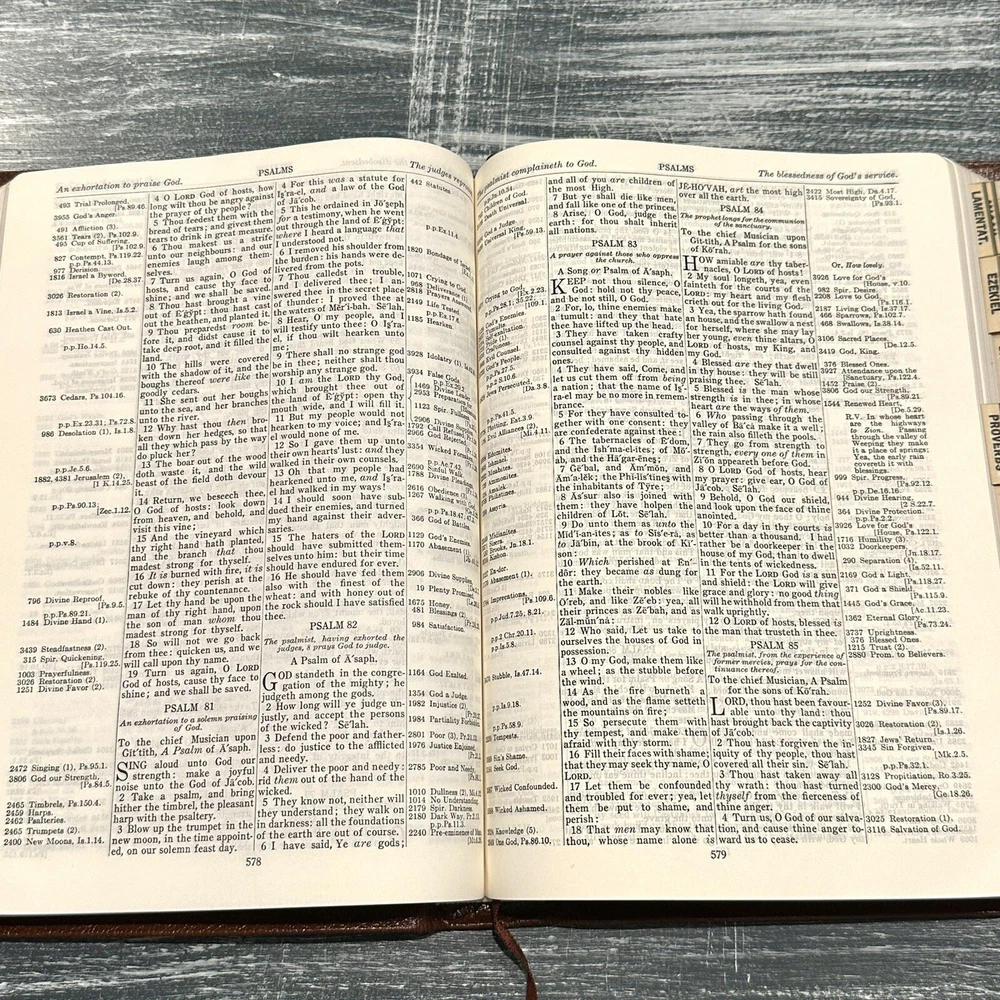 An exhortation to praise God.
PSALMS
493 Trial-Prolonged.
[Ps.89.46.
3955 God's Anger.
491 Affliction (3).
3561 Tears (2), Ps.102.9.
495 Cup of Suffering.
[Ps.102.9.
827 Contempt, Ps.119.22.
p.p.Ps.44.13.
977 Derision.
1816 Israel a Byword.
[De.28.37.
3026 Restoration (2).
1813 Israel a Vine, Is.5.2.
630 Heathen Cast Out.
p.p.Ho.14.5.
3673 Cedars, Ps.104.16.
p.p.Ex.23.31; Ps.72.8.
986 Desolation (1), Is.1.8.
p.p.Je.5.6.
1882, 4381 Jerusalem (2),
[La.14.25.
p.p.Ps.90.13;
[Zec.1.12.
p.p.v.8.
796 Divine Reproof,
[Ps.9.5.
p.p.Ps.89.21.
1484 Divine Hand (1).
3439 Steadfastness (2).
315 Spir. Quickening,
[Ps.119.25.
1003 Prayerfulness.
3026 Restoration (2).
1251 Divine Favor (2).
2472 Singing (1), Ps.95.1.
3806 God our Strength,
[Ps.84.5.
2465 Timbrels, Ps.150.4.
2459 Harps.
2462 Psalteries.
2465 Trumpets (2).
2400 New Moons, Is.1.14.
4 O LORD God of hosts, how
long wilt thou be angry against
the prayer of thy people?
5 Thou feedest them with the
bread of tears; and givest them
tears to drink in great measure.
6 Thou makest us a strife
unto our neighbours: and our
enemies laugh among them-
selves.
7 Turn us again, O God of
hosts, and cause thy face to
shine; and we shall be saved.
8 Thou hast brought a vine
out of Ē'ġypt: thou hast cast
out the heathen, and planted it.
9 Thou preparedst room be-
fore it, and didst cause it to
take deep root, and it filled the
land.
10 The hills were covered
with the shadow of it, and the
boughs thereof were like the
goodly cedars.
11 She sent out her boughs
unto the sea, and her branches
unto the river.
12 Why hast thou then bro-
ken down her hedges, so that
all they which pass by the way
do pluck her?
13 The boar out of the wood
doth waste it, and the wild
beast of the field doth devour
it.
14 Return, we beseech thee,
O God of hosts: look down
from heaven, and behold, and
visit this vine;
15 And the vineyard which
thy right hand hath planted,
and the branch that thou
madest strong for thyself.
16 It is burned with fire, it is
cut down: they perish at the
rebuke of thy countenance.
17 Let thy hand be upon the
man of thy right hand, upon
the son of man whom thou
madest strong for thyself.
18 So will not we go back
from thee: quicken us, and we
will call upon thy name.
19 Turn us again, O LORD
God of hosts, cause thy face to
shine; and we shall be saved.
PSALM 81
An exhortation to a solemn praising
of God.
To the chief Musician upon
Ġit'tith, A Psalm of Ā'saph.
SING aloud unto God our
strength: make a joyful
noise unto the God of Jā'cob.
2 Take a psalm, and bring
hither the timbrel, the pleasant
harp with the psaltery.
3 Blow up the trumpet in the
new moon, in the time appoint-
ed, on our solemn feast day.
4 For this was a statute for
Ĭṣ'ra-el, and a law of the God
of Jā'cob.
5 This he ordained in Jō'ṣeph
for a testimony, when he went
out through the land of Ē'ġypt:
where I heard a language that
I understood not.
6 I removed his shoulder from
the burden: his hands were de-
livered from the pots.
7 Thou calledst in trouble,
and I delivered thee; I an-
swered thee in the secret place
of thunder: I proved thee at
the waters of Mĕr'ĭ-bah. Sē'lah.
8 Hear, O my people, and I
will testify unto thee: O Ĭṣ'ra-
el, if thou wilt hearken unto
me;
9 There shall no strange god
be in thee; neither shalt thou
worship any strange god.
10 I am the LORD thy God,
which brought thee out of
the land of Ē'ġypt: open thy
mouth wide, and I will fill it.
11 But my people would not
hearken to my voice; and Ĭṣ'ra-
el would none of me.
12 So I gave them up unto
their own hearts' lust: and they
walked in their own counsels.
13 Oh that my people had
hearkened unto me, and Ĭṣ'ra-
el had walked in my ways!
14 I should soon have sub-
dued their enemies, and turned
my hand against their adver-
saries.
15 The haters of the LORD
should have submitted them-
selves unto him: but their time
should have endured for ever.
16 He should have fed them
also with the finest of the
wheat: and with honey out of
the rock should I have satisfied
thee.
PSALM 82
The psalmist, having exhorted the
judges, 8 prays God to judge.
A Psalm of Ā'saph.
GOD standeth in the congre-
gation of the mighty; he
judgeth among the gods.
2 How long will ye judge un-
justly, and accept the persons
of the wicked? Sē'lah.
3 Defend the poor and father-
less: do justice to the afflicted
and needy.
4 Deliver the poor and needy:
rid them out of the hand of the
wicked.
5 They know not, neither will
they understand; they walk on
in darkness: all the foundations
of the earth are out of course.
6 I have said, Ye are gods;
The judges
442 Statutes.
p.p.Ex.11.4.
1820 Bondage of
1071 Crying to God
968 Deliverance
2818 Prayers
2149 Life Tested
p.p.Ex.17.
1185 Hearken.
3928 Idolatry (1),
3934 False Gods.
1469 Divine Leader
2953 Preparedness
1123 Spir. Fulness
2906 Divine
1792 Call Refused
2906 God Rejected
3354 Wicked
p.p.Ac.7.42.
2690 Sinful Walk
2616 Obedience
1267 Walking
366 God of Battles
1129 God's Enemies
1170 Abasement
2906 Divine Supplies
2919 Plenty
1675 Honey.
481 Blessings
984 Satisfaction,
1164 God Exalted.
1354 God a Judge.
1982 Injustice
1984 Partiality
2801 Poor (3), Pr.21.13.
1976 Justice Enjoined,
2785 Poor and Needy
1010 Dullness (2),
1014 No Understanding.
2179 Spir. Darkness.
2180 Dark Way,
p.p.Ps.11.3.
2240 Pre-eminence of
578
psalmist complaineth to God.
PSALMS
The blessedness of God's service.
and all of you are children of
the most High.
7 But ye shall die like men,
and fall like one of the princes.
8 Arise, O God, judge the
earth: for thou shalt inherit
all nations.
PSALM 83
A prayer against those who oppress
the church.
A Song or Psalm of Ā'saph.
KEEP not thou silence, O
God: hold not thy peace,
and be not still, O God.
2 For, lo, thine enemies make
a tumult: and they that hate
thee have lifted up the head.
3 They have taken crafty
counsel against thy people, and
consulted against thy hidden
ones.
4 They have said, Come, and
let us cut them off from being
a nation; that the name of Ĭṣ'-
ra-el may be no more in remem-
brance.
5 For they have consulted to-
gether with one consent: they
are confederate against thee:
6 The tabernacles of Ē'dom,
and the Ĭsh'ma-el-ites; of Mō'-
ab, and the Hā'gar-ēneṣ;
7 Ġē'bal, and Ăm'mŏn, and
Ăm'a-lĕk; the Phĭ-lĭs'tines with
the inhabitants of Tȳre;
8 Ăs'sur also is joined with
them: they have holpen the
children of Lŏt. Sē'lah.
9 Do unto them as unto the
Mĭd'ĭ-an-ites; as to Sĭs'e-rà, as
to Jā'bin, at the brook of Kī'-
son:
10 Which perished at En'-
dôr: they became as dung for
the earth.
11 Make their nobles like
Ō'reb, and like Zē'eb: yea, all
their princes as Zē'bah, and as
Zăl-mŭn'nà:
12 Who said, Let us take to
ourselves the houses of God in
possession.
13 O my God, make them like
a wheel; as the stubble before
the wind.
14 As the fire burneth a
wood, and as the flame setteth
the mountains on fire;
15 So persecute them with
thy tempest, and make them
afraid with thy storm.
16 Fill their faces with shame;
that they may seek thy name, O
LORD.
17 Let them be confounded
and troubled for ever; yea, let
them be put to shame, and
perish:
18 That men may know that
thou, whose name alone is
JĒ-HŌ'VAH, art the most high
over all the earth.
PSALM 84
The prophet longs for the communion
of the sanctuary.
To the chief Musician upon
Ġit-tith, A Psalm for the sons
of Kō'rah.
HOW amiable are thy taber-
nacles, O LORD of hosts!
2 My soul longeth, yea, even
fainteth for the courts of the
LORD: my heart and my flesh
crieth out for the living God.
3 Yea, the sparrow hath found
an house, and the swallow a nest
for herself, where she may lay
her young, even thine altars, O
LORD of hosts, my King, and
my God.
4 Blessed are they that dwell
in thy house: they will be still
praising thee. Sē'lah.
5 Blessed is the man whose
strength is in thee; in whose
heart are the ways of them.
6 Who passing through the
valley of Bā'cà make it a well;
the rain also filleth the pools.
7 They go from strength to
strength, every one of them in
Zī'on appeareth before God.
8 O LORD God of hosts, hear
my prayer: give ear, O God of
Jā'cob. Sē'lah.
9 Behold, O God our shield,
and look upon the face of thine
anointed.
10 For a day in thy courts is
better than a thousand. I had
rather be a doorkeeper in the
house of my God, than to dwell
in the tents of wickedness.
11 For the LORD God is a sun
and shield: the LORD will give
grace and glory: no good thing
will he withhold from them that
walk uprightly.
12 O LORD of hosts, blessed is
the man that trusteth in thee.
PSALM 85
The psalmist, from the experience of
former mercies, prays for the con-
tinuance thereof.
To the chief Musician, A Psalm
for the sons of Kō'rah.
LORD, thou hast been favour-
able unto thy land: thou
hast brought back the captivity
of Jā'cob.
2 Thou hast forgiven the in-
iquity of thy people, thou hast
covered all their sin. Sē'lah.
3 Thou hast taken away all
thy wrath: thou hast turned
thyself from the fierceness of
thine anger.
4 Turn us, O God of our salva-
tion, and cause thine anger to-
ward us to cease.
2422 Most High, Da.4.17.
3415 Sovereignty of God,
[Ps.93.1.
Or, How lovely.
3926 Love for God's
[House, v.10.
982 Spir. Desire.
2208 Love to God,
[Ps.116.1.
2187 Living God, Is.37.17.
466 Sparrows, Ps.102.7.
468 Swallows, Is.38.14.
3106 Sacred Places,
[De.12.5.
3419 God, King.
376 Blessed Ones.
3927 Attendance upon the
[Sanctuary, Ps.122.4.
1452 Praise (2).
3806 God our Strength,
[Ps.89.21.
1544 Renewed Heart,
[De.5.29.
R.V. In whose heart
are the highways
to Zion. Passing
through the valley
of Weeping they make
it a place of springs;
Yea, the early rain
covereth it with
blessings.
999 Spir. Progress,
[Ps.92.12.
p.p.De.16.16.
944 Divine Hearing,
[2 S.22.7.
364 Divine Protection.
p.p.Ps.2.2.
3926 Love for God's
[House, Ps.122.1.
1716 Humility (3).
1032 Doorkeepers,
[Jn.18.17.
290 Separation (4),
[Is.52.11.
2169 God a Light,
[Ps.118.27.
371 God a Shield,
[Ps.115.9.
1445 God's Grace,
[Ac.11.23.
1362 Eternal Glory,
[Ps.73.24.
3737 Uprightness.
376 Blessed Ones.
1215 Trust (2).
2880 Prom. to Believers.
1252 Divine Favor (3),
[Ps.89.17.
3026 Restoration (2),
[Is.1.26.
1827 Jews' Return.
3345 Sin Forgiven,
[Mk.2.5.
p.p.Ps.32.1.
3128 Propitiation, Ro.3.25.
2300 God's Mercy,
[Ge.18.26.
3025 Restoration (1).
3116 Salvation of God.
579
LAMENTAT.
EZEKIEL
PROVERBS